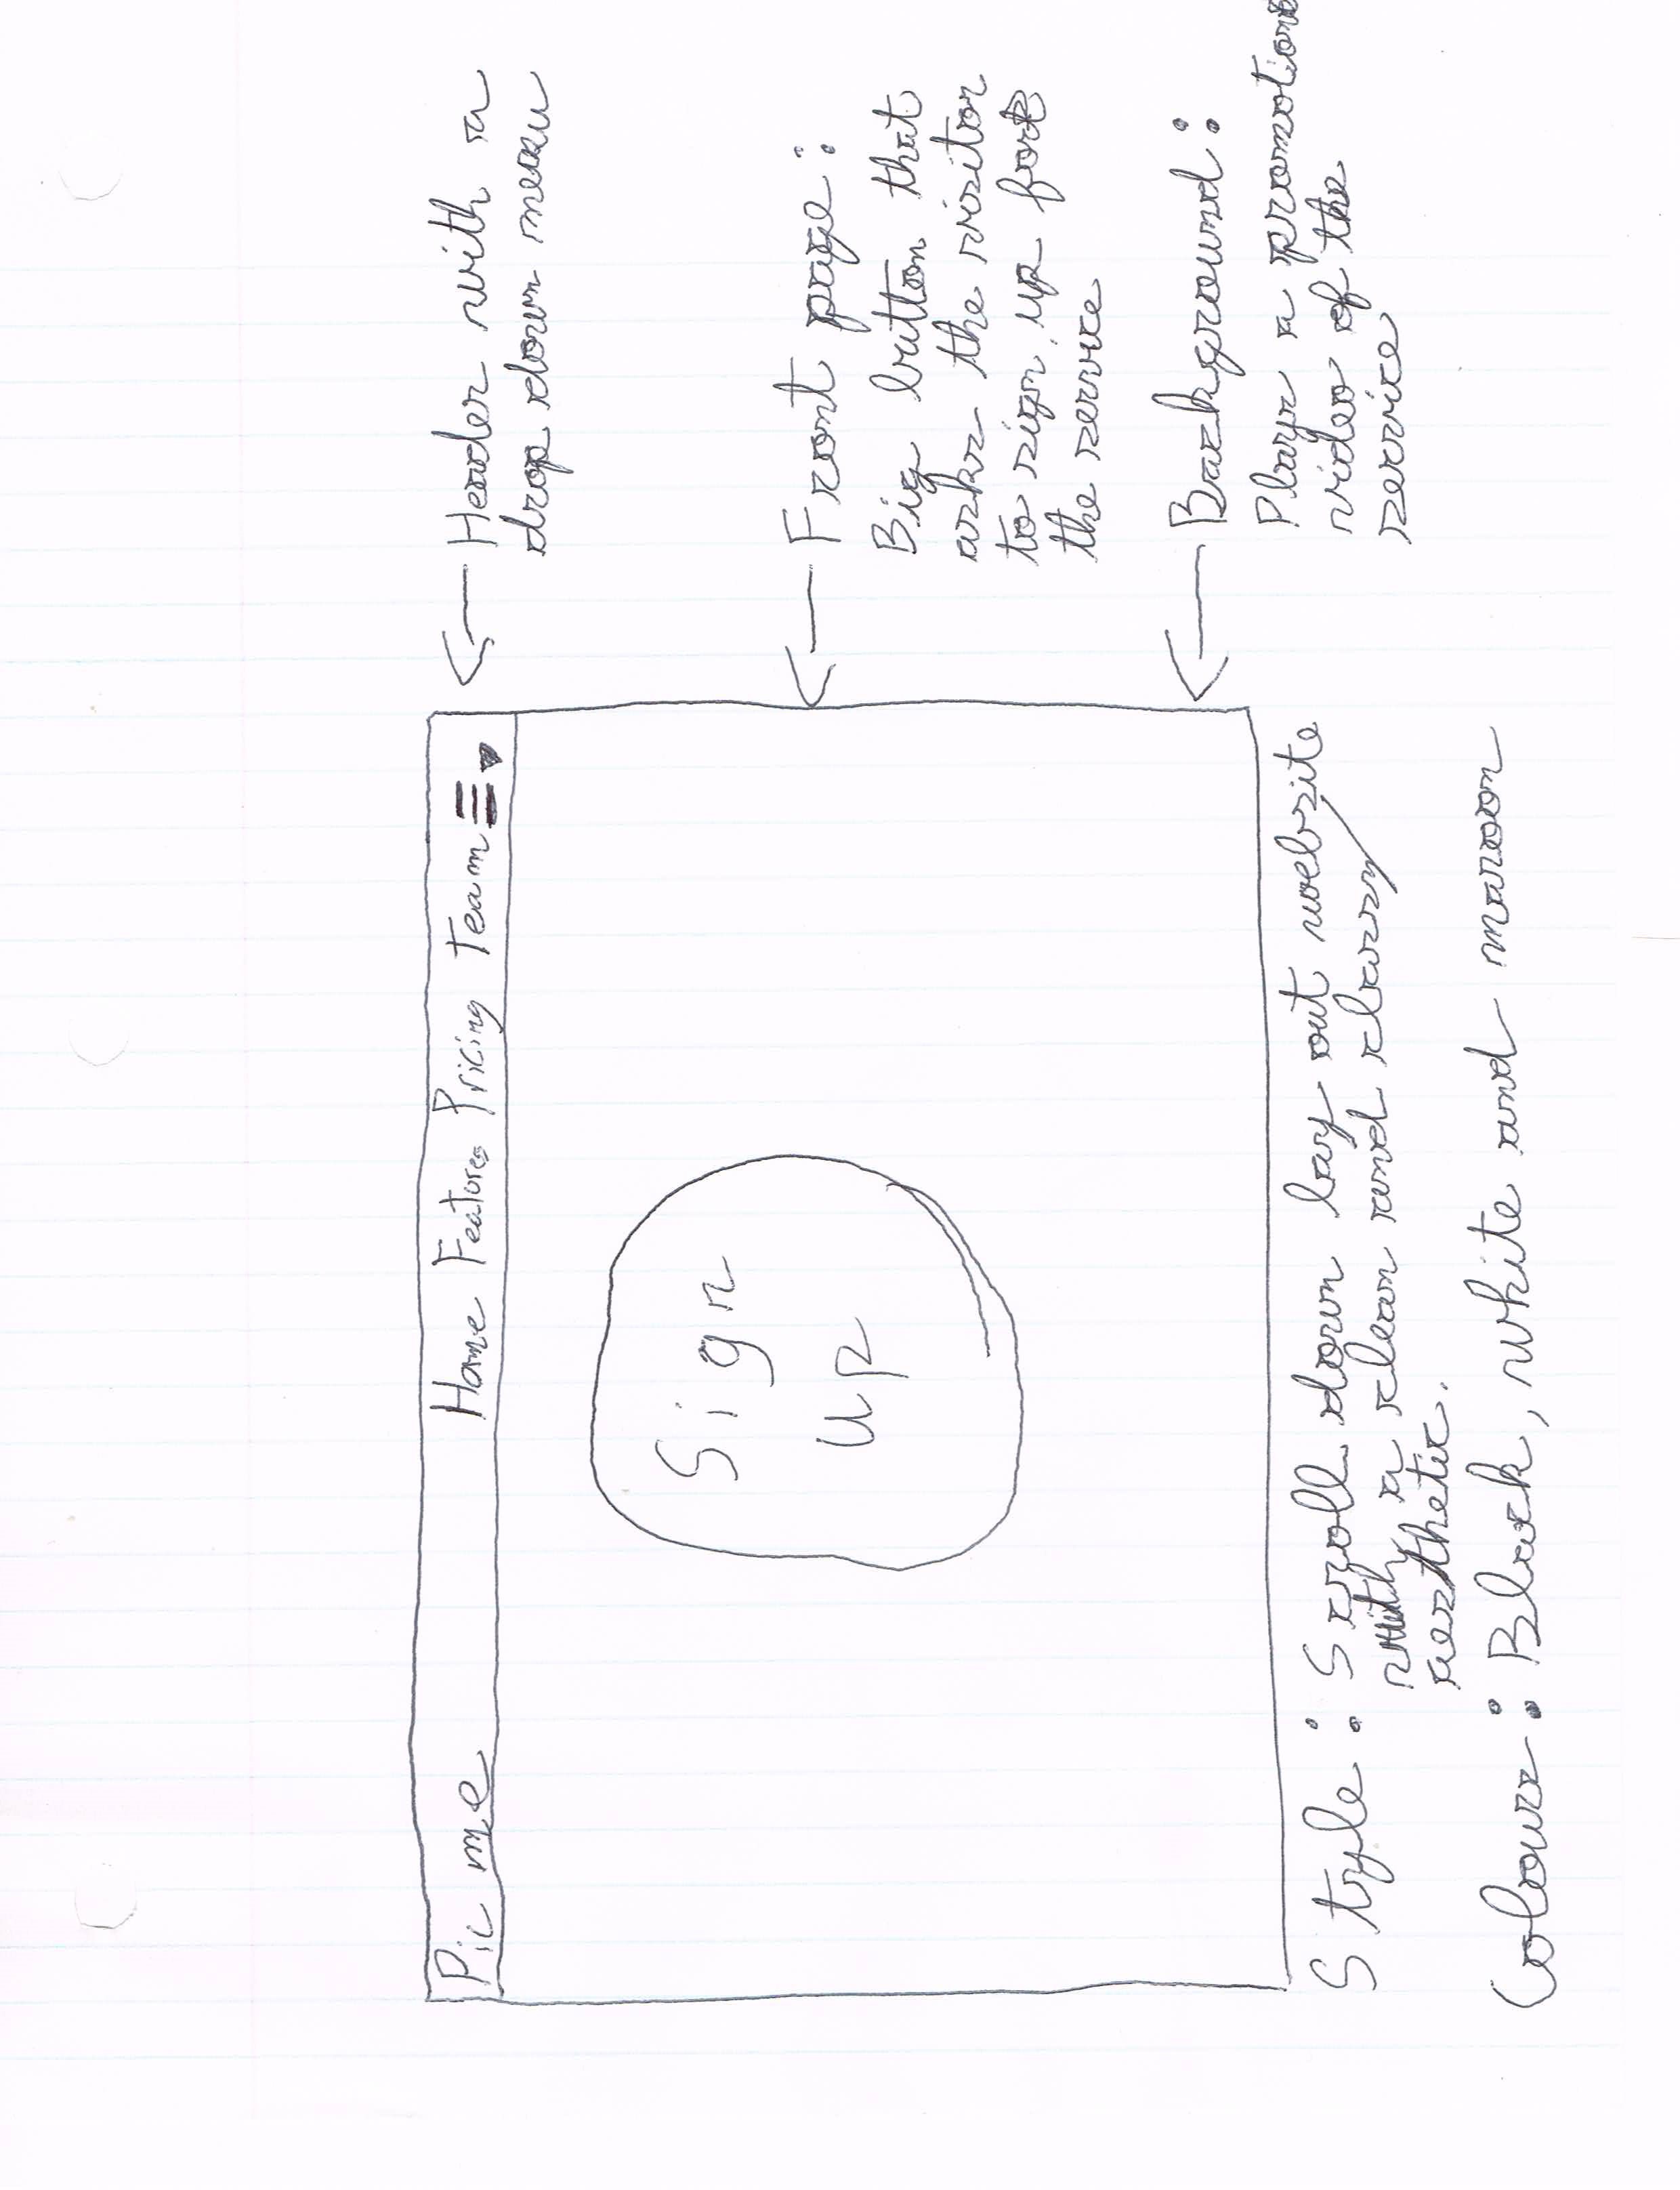 Pic me Home Features Pricing Team
Header with a
drop down menu
Sign
up
Front page:
Big button that
asks the visitor
to sign up for
the service
Background:
Plays a promotional
video of the
service
Style: Scroll down lay out website
with a clean and classy
aesthetic.
Colour: Black, white and maroon